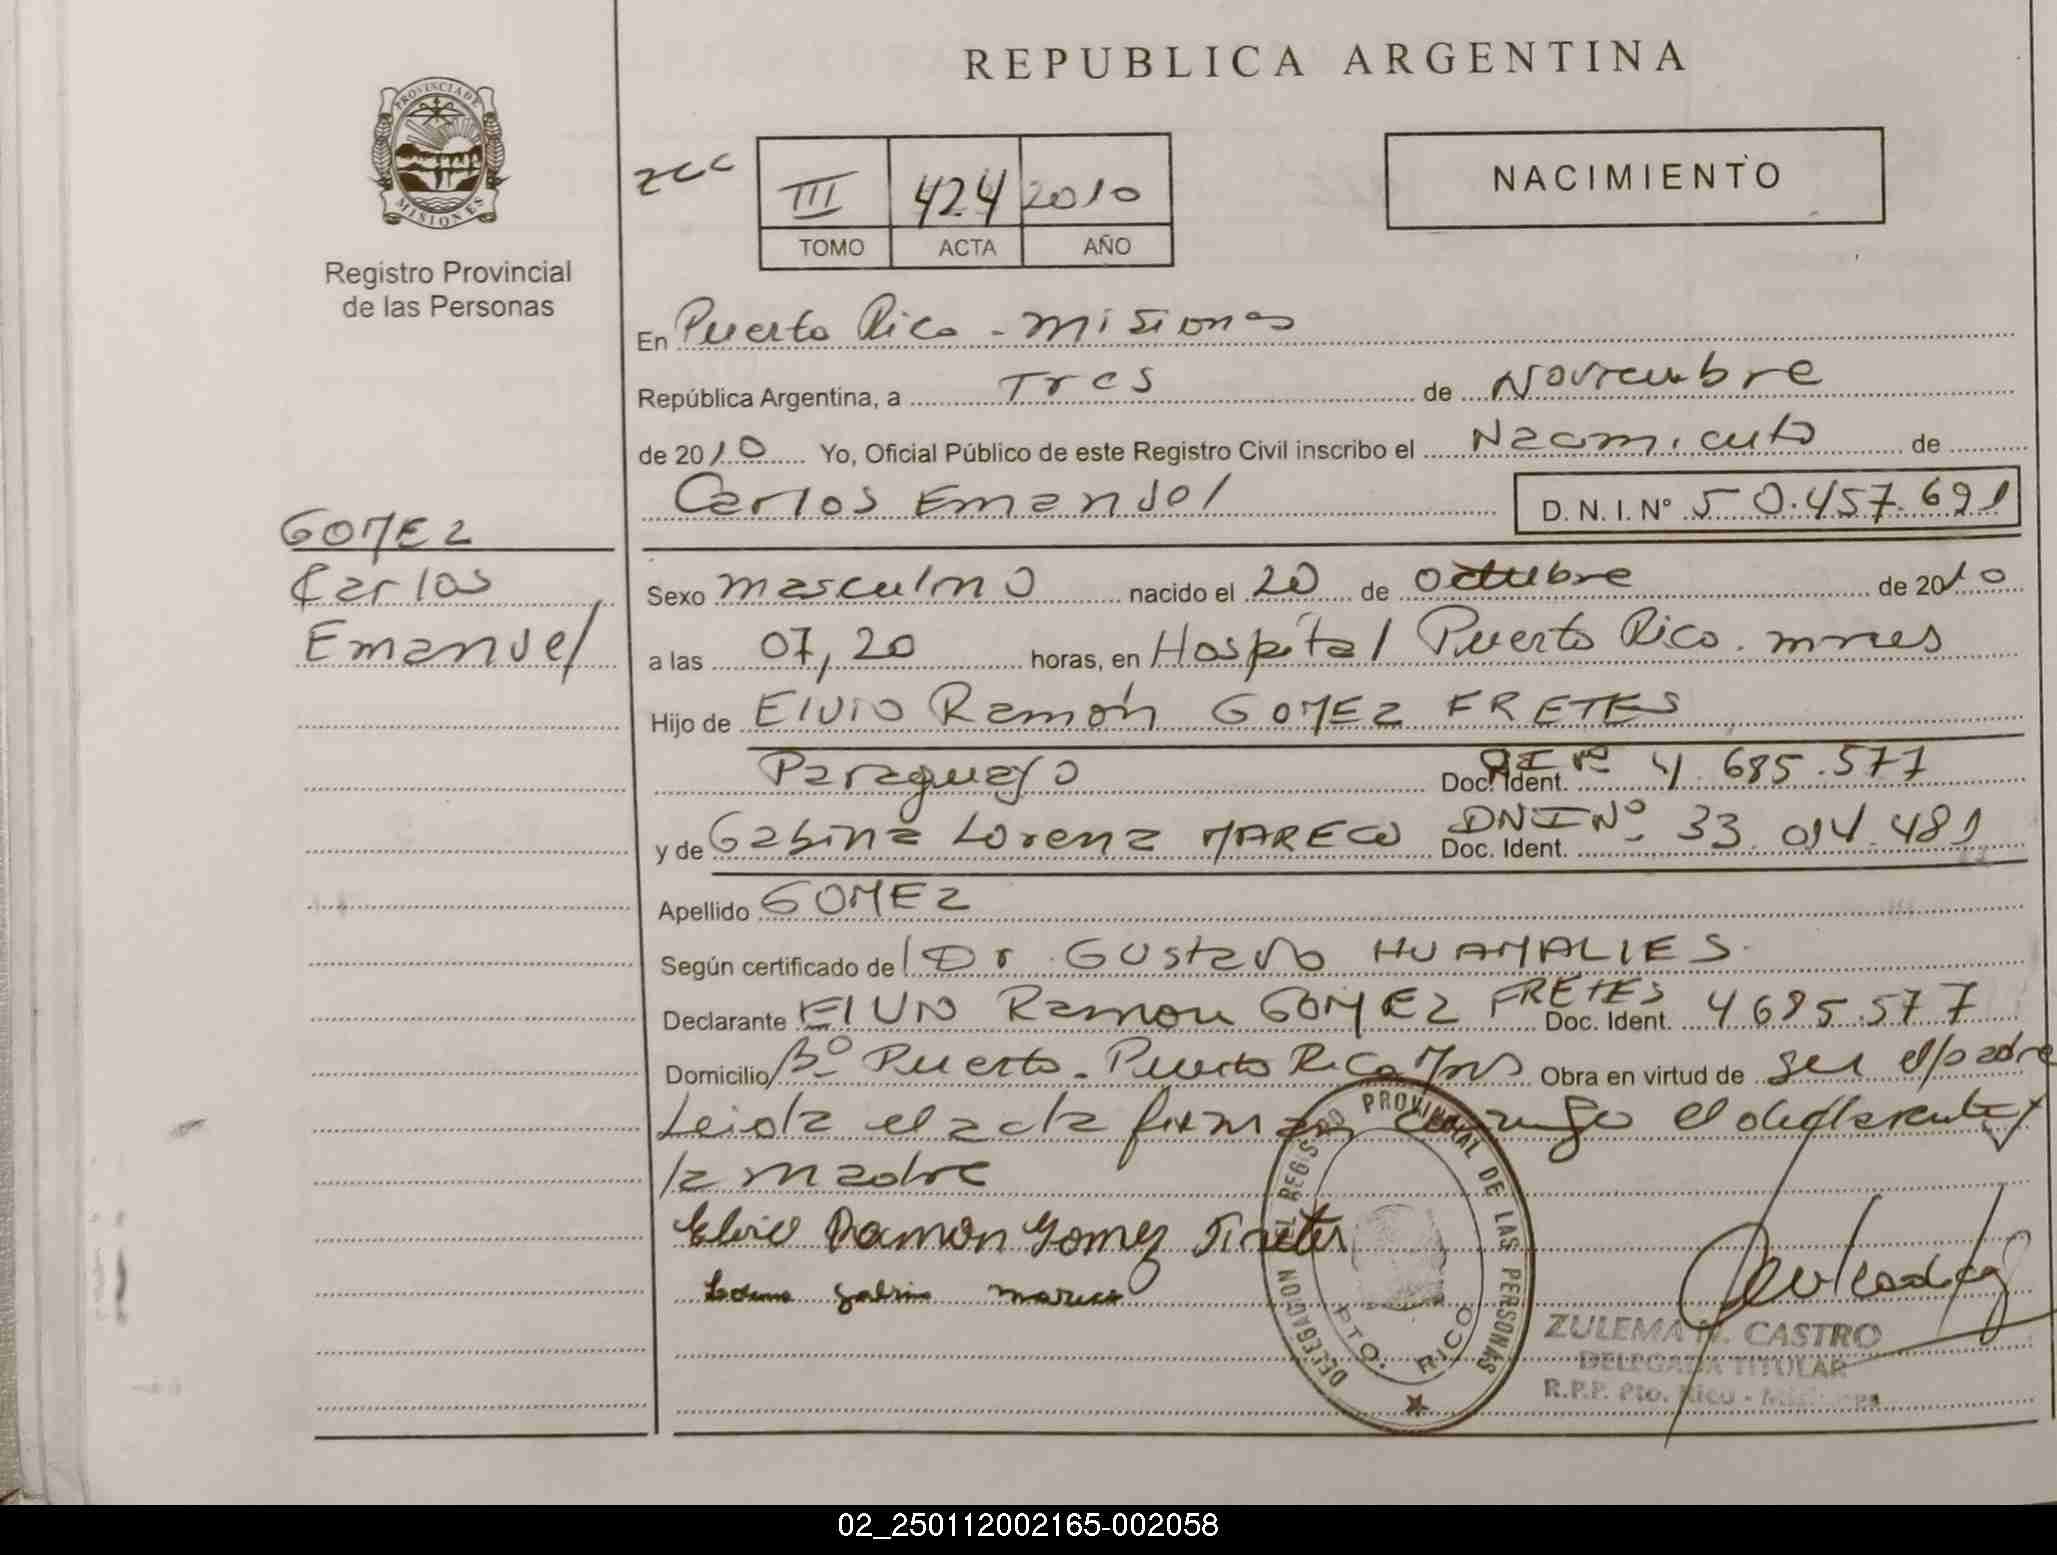 REPUBLICA ARGENTINA
PROVINCIA DE
MISIONES
Registro Provincial
de las Personas
zcc
III 424 2010
TOMO ACTA AÑO
NACIMIENTO
En Puerto Rico - Misiones
República Argentina, a Tres de Noviembre
de 2010 Yo, Oficial Público de este Registro Civil inscribo el Nacimiento de
Carlos Emanuel D. N. I. Nº 50.457.691
GOMEZ
Carlos
Emanuel
Sexo masculino nacido el 20 de octubre de 2010
a las 07,20 horas, en Hospital Puerto Rico. mnes
Hijo de Elvio Ramón GOMEZ FRETES
Paraguayo Doc. Ident. CI Nº 4.685.577
y de Gabina Lorena MARECO Doc. Ident. DNI Nº 33.014.481
Apellido GOMEZ
Según certificado del Dr. Gustavo HUAMALIES.
Declarante Elvio Ramon GOMEZ FRETES Doc. Ident. 4685.577
Domicilio Bº Puerto - Puerto Rico Mnes Obra en virtud de ser el padre
Leida el acta firman conmigo el declarante y
la madre
Elvio Ramon Gomez Fretes
Lorena Gabina Mareco
DELEGACION DEL REGISTRO PROVINCIAL DE LAS PERSONAS
PTO. RICO
ZULEMA N. CASTRO
DELEGADA TITULAR
R.P.P. Pto. Rico - Misiones
02_250112002165-002058